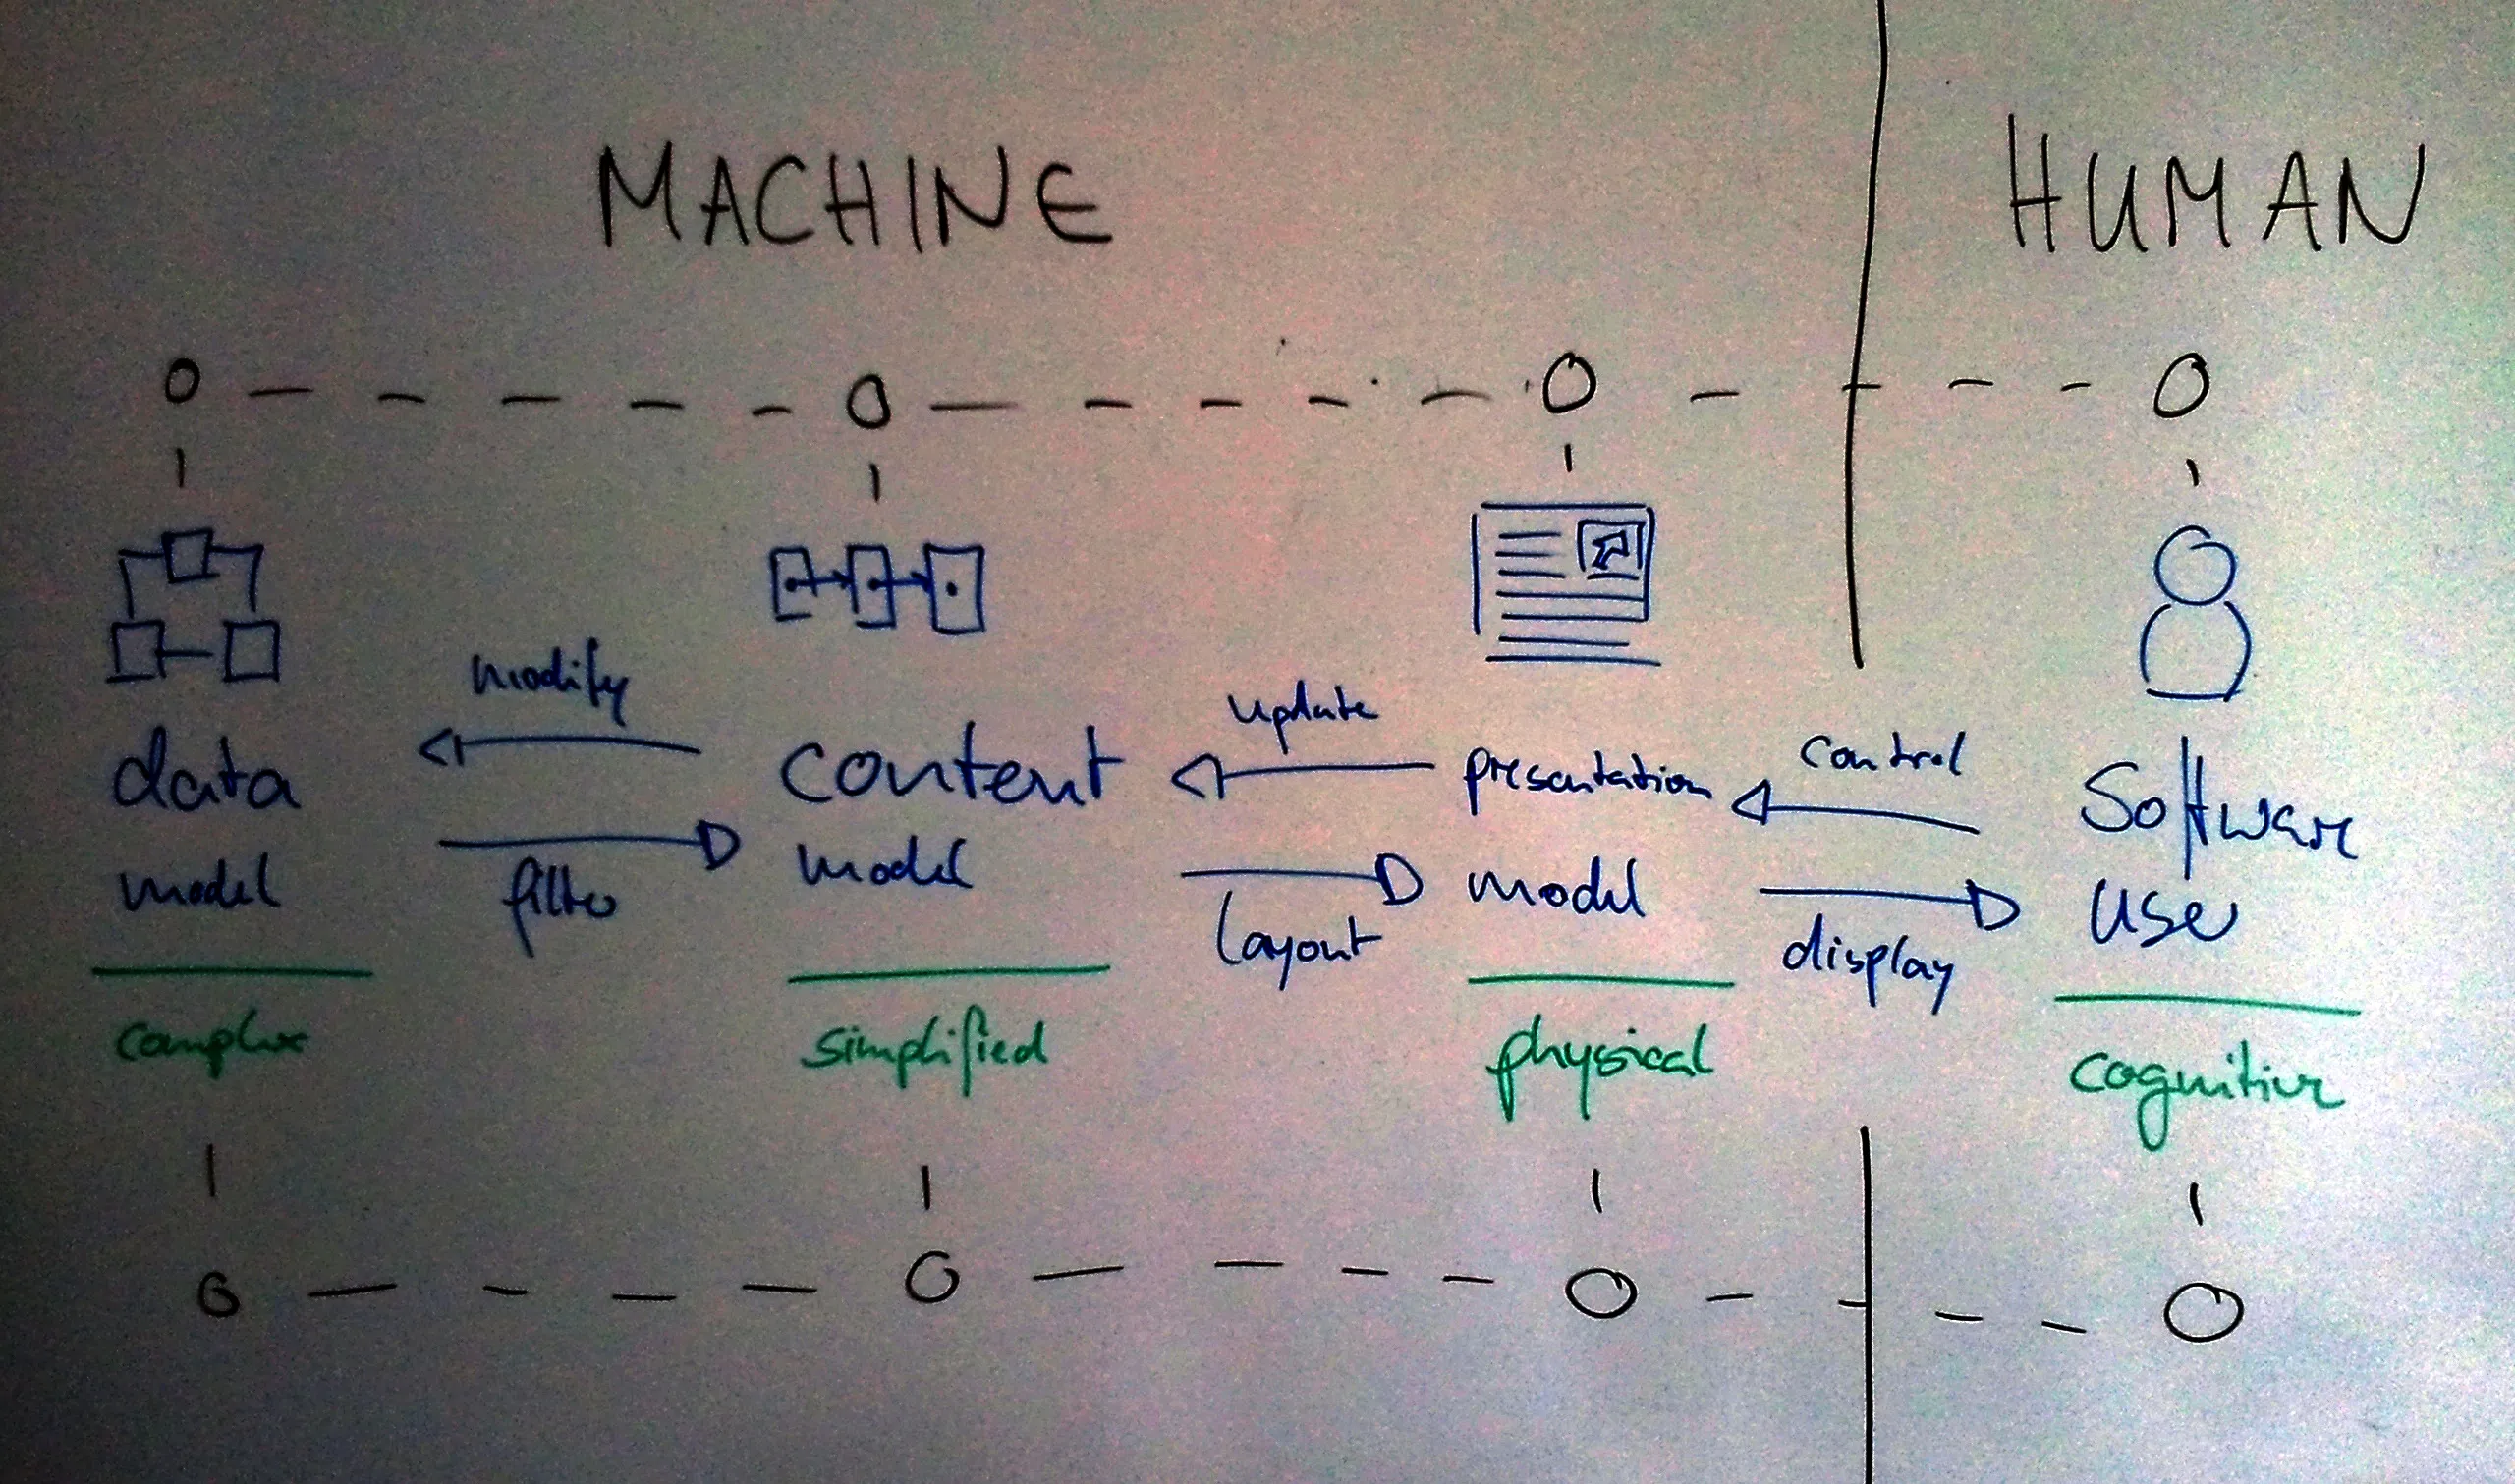 MACHINE
HUMAN
modify
update
control
data
content
presentation
Software
model
filter
model
layout
model
display
user
complex
simplified
physical
cognitive